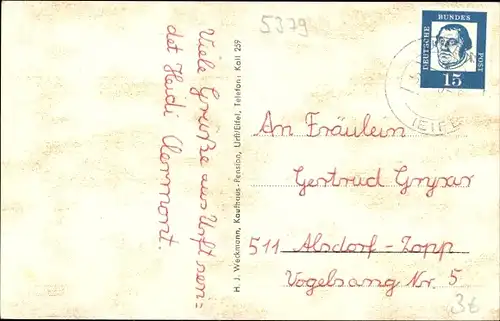 5379
Viele Grüße aus Urft sen=
det Heidi Clermont.
H. J. Weckmann, Kaufhaus-Pension, Urft/Eifel, Telefon: Kall 259
DEUTSCHE
BUNDES
POST
15
(EIFE
An Fräulein
Gertrud Grysar
511 Alsdorf-Zopp
Vogelsang Nr. 5
3€